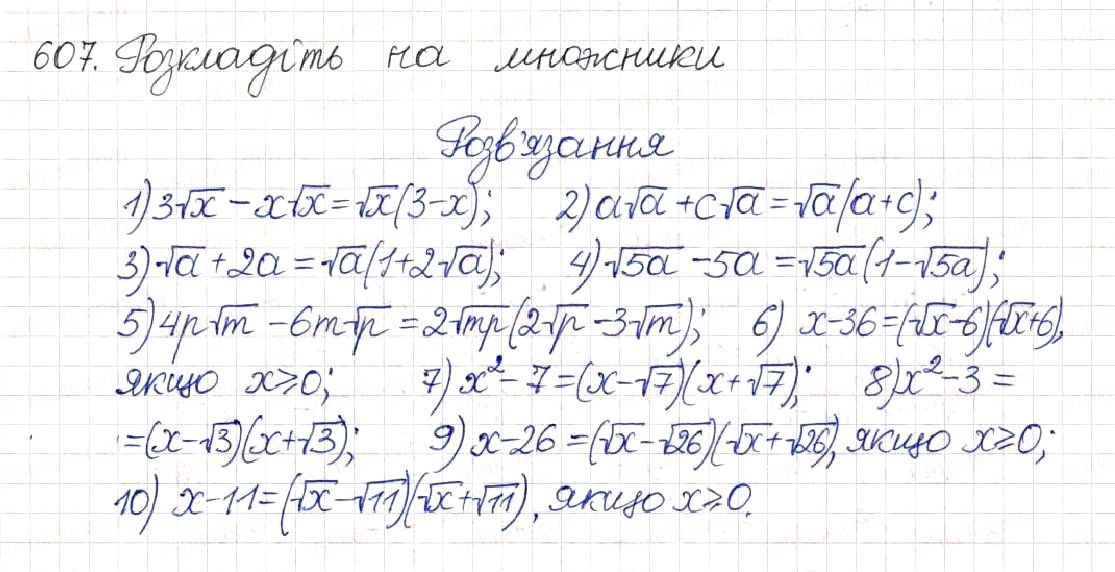 607. Розкладіть на множники
Розв'язання
1) 3√x - x√x = √x(3-x); 2) a√a + c√a = √a(a+c);
3) √a + 2a = √a(1+2√a); 4) √5a - 5a = √5a(1-√5a);
5) 4p√m - 6m√p = 2√mp(2√p - 3√m); 6) x-36=(√x-6)(√x+6),
якщо x≥0; 7) x²-7=(x-√7)(x+√7); 8) x²-3=
=(x-√3)(x+√3); 9) x-26=(√x-√26)(√x+√26), якщо x≥0;
10) x-11=(√x-√11)(√x+√11), якщо x≥0.